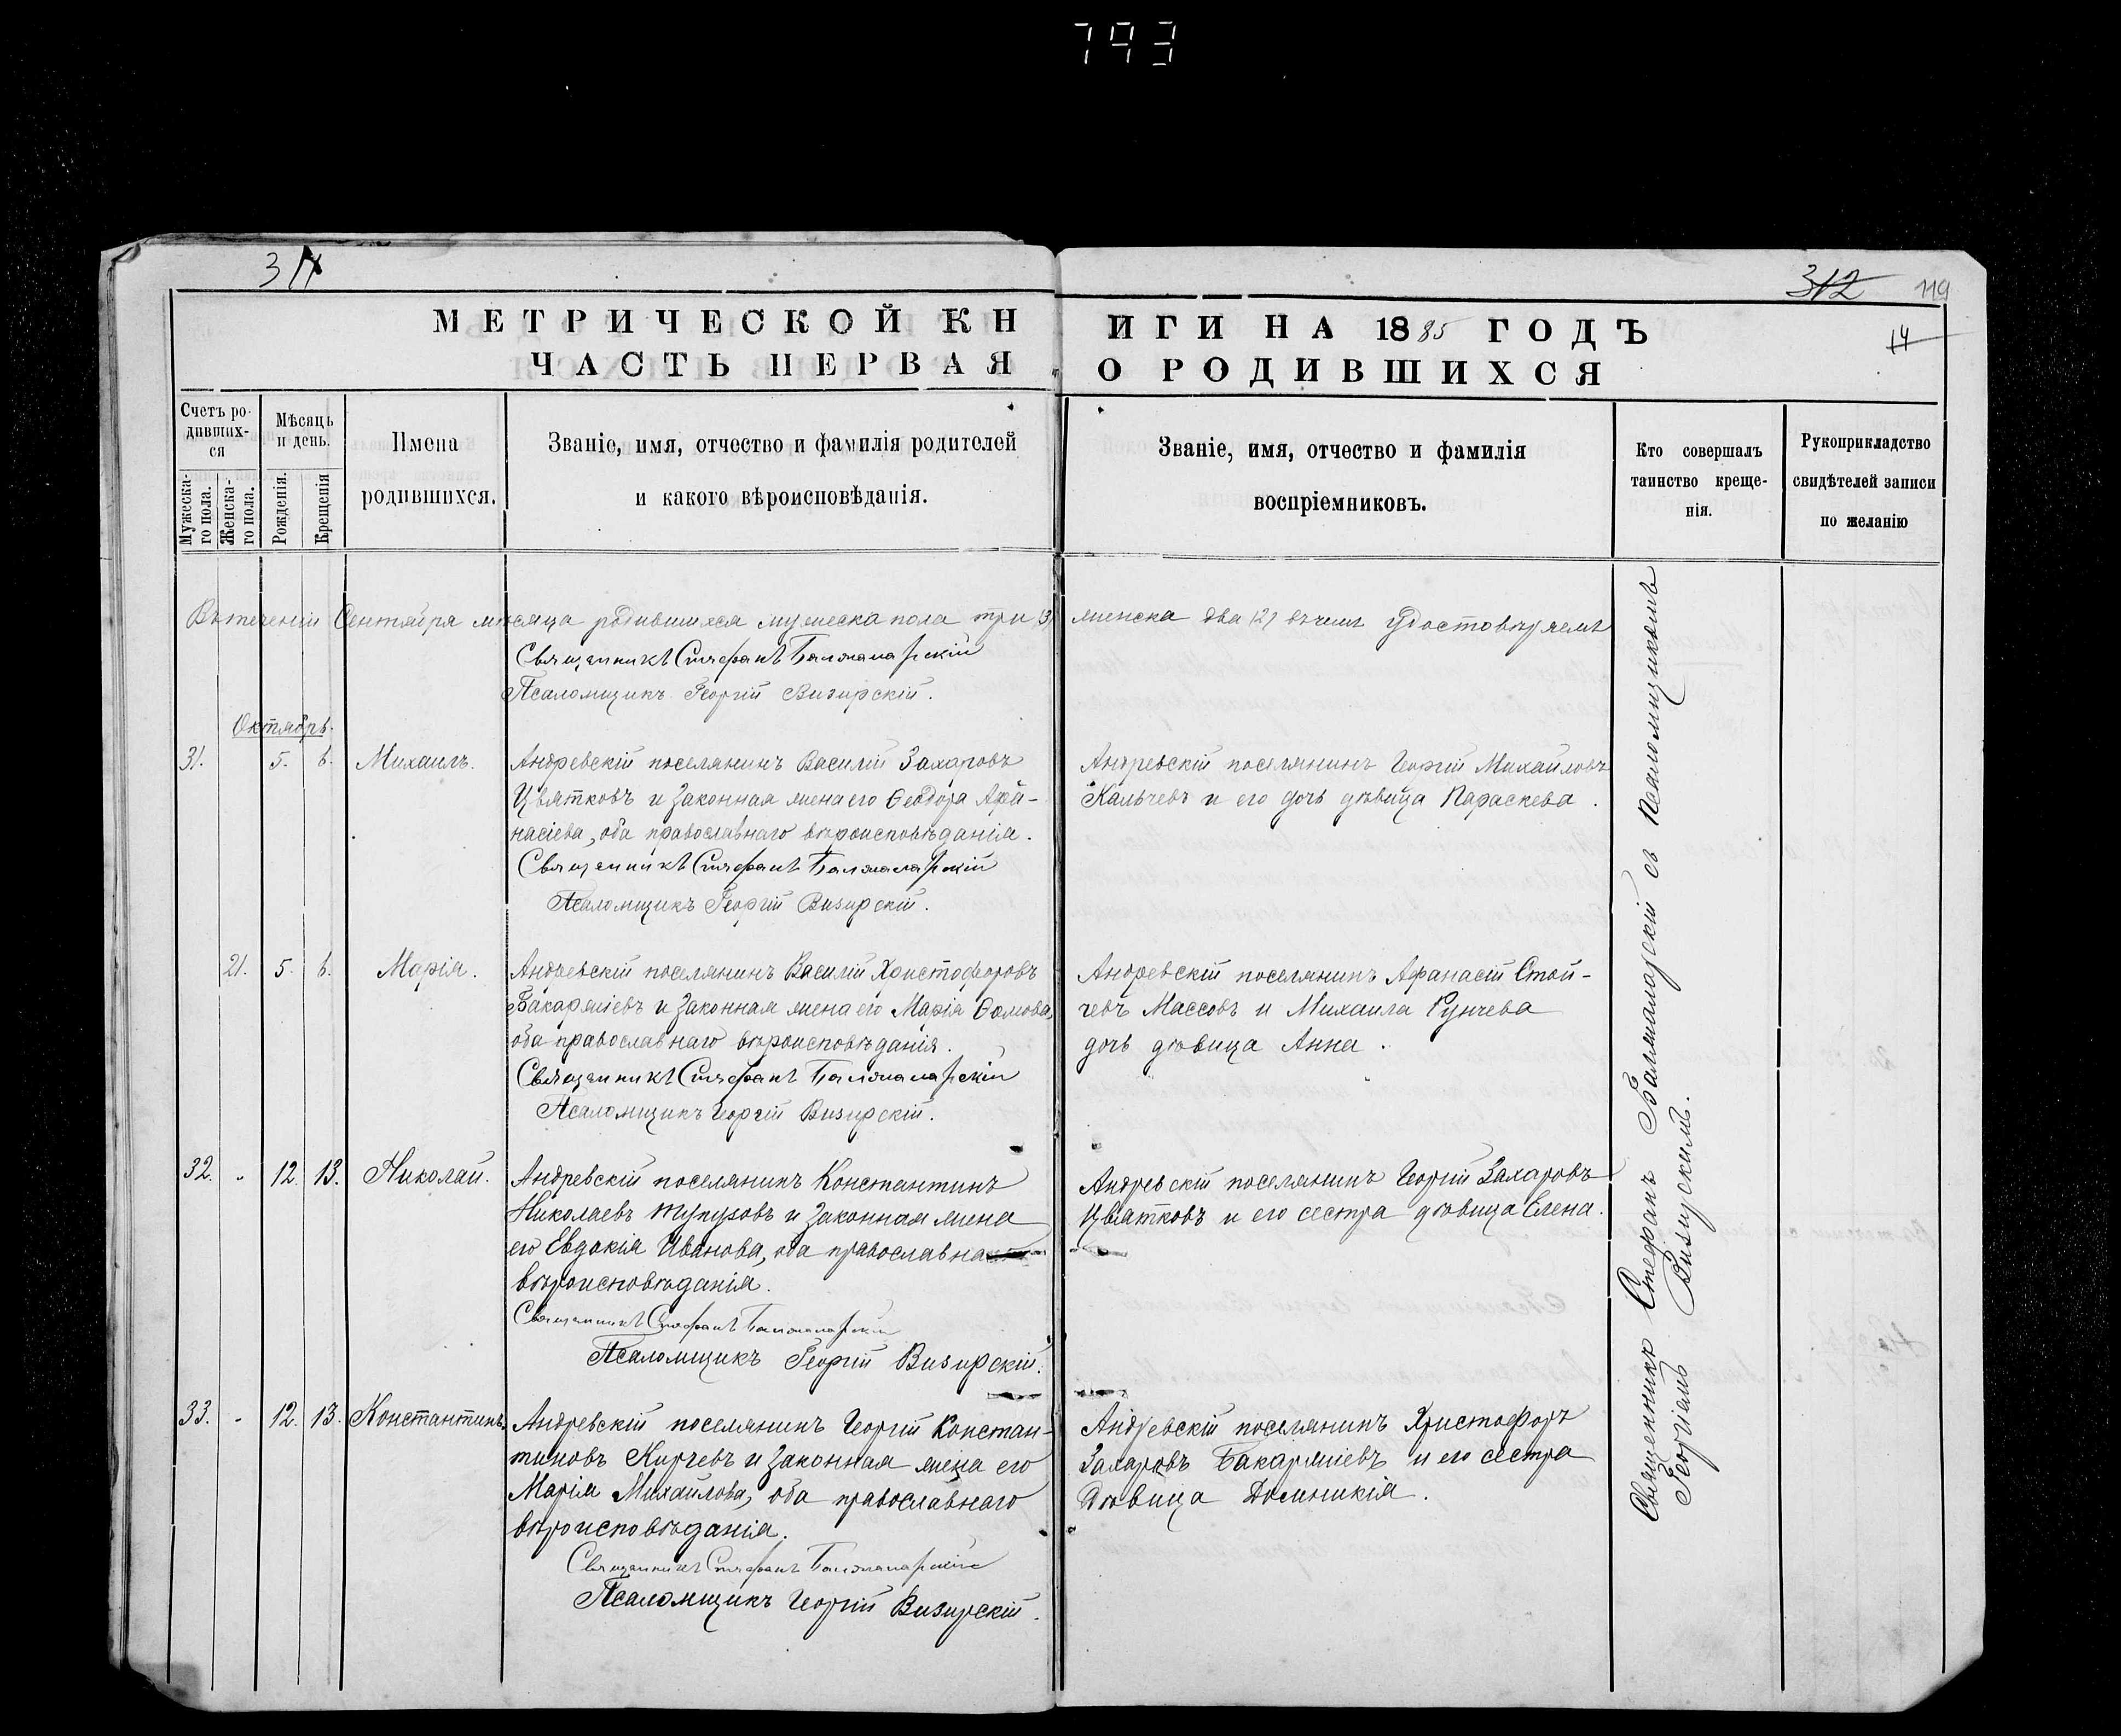 793
311
312 119
14
МЕТРИЧЕСКОЙ КНИГИ НА 1885 ГОДЪ
ЧАСТЬ ПЕРВАЯ О РОДИВШИХСЯ
Счетъ родивших-ся
Мужеска-го пола.
Женска-го пола.
Мѣсяцъ и день.
Рожденія.
Крещенія
Имена
родившихся.
Званіе, имя, отчество и фамилія родителей
и какого вѣроисповѣданія.
Званіе, имя, отчество и фамилія
воспріемниковъ.
Кто совершалъ
таинство креще-
нія.
Рукоприкладство
свидѣтелей записи
по желанію
Въ теченіи Сентября мѣсяца родившихся мужеска пола три (3) женска два (2) въ чемъ удостовѣряемъ
Священникъ Стефанъ Балжаларскій
Псаломщикъ Георгій Визирскій.
Октябрь.
31. 5. 6. Михаилъ.
Андревскій поселянинъ Василій Захаровъ
Цвятковъ и законная жена его Ѳеодора Афа-
насіева, оба православнаго вѣроисповѣданія.
Священникъ Стефанъ Балжаларскій
Псаломщикъ Георгій Визирскій.
Андревскій поселянинъ Георгій Михайловъ
Кальчевъ и его дочь дѣвица Параскева.
21. 5. 6. Марія.
Андревскій поселянинъ Василій Христофоровъ
Бакаржіевъ и законная жена его Марія Ѳомова,
оба православнаго вѣроисповѣданія.
Священникъ Стефанъ Балжаларскій
Псаломщикъ Георгій Визирскій.
Андревскій поселянинъ Афанасій Стой-
чевъ Массовъ и Михаила Рунчева
дочь дѣвица Анна.
32. " 12. 13. Николай.
Андревскій поселянинъ Константинъ
Николаевъ и законная жена
его Евдокія Иванова, оба православна
вѣроисповѣданія.
Священникъ Стефанъ Балжаларскій
Псаломщикъ Георгій Визирскій.
Андревскій поселянинъ Георгій Захаровъ
Цвятковъ и его сестра дѣвица Елена.
33. " 12. 13. Константинъ.
Андревскій поселянинъ Георгій Констан-
тиновъ Кирчевъ и законная жена его
Марія Михайлова, оба православнаго
вѣроисповѣданія.
Священникъ Стефанъ Балжаларскій
Псаломщикъ Георгій Визирскій.
Андревскій поселянинъ Христофоръ
Захаровъ Бакаржіевъ и его сестра
дѣвица Доминикія.
Священникъ Стефанъ Балжаларскій съ Псаломщикомъ
Георгіемъ Визирскимъ.